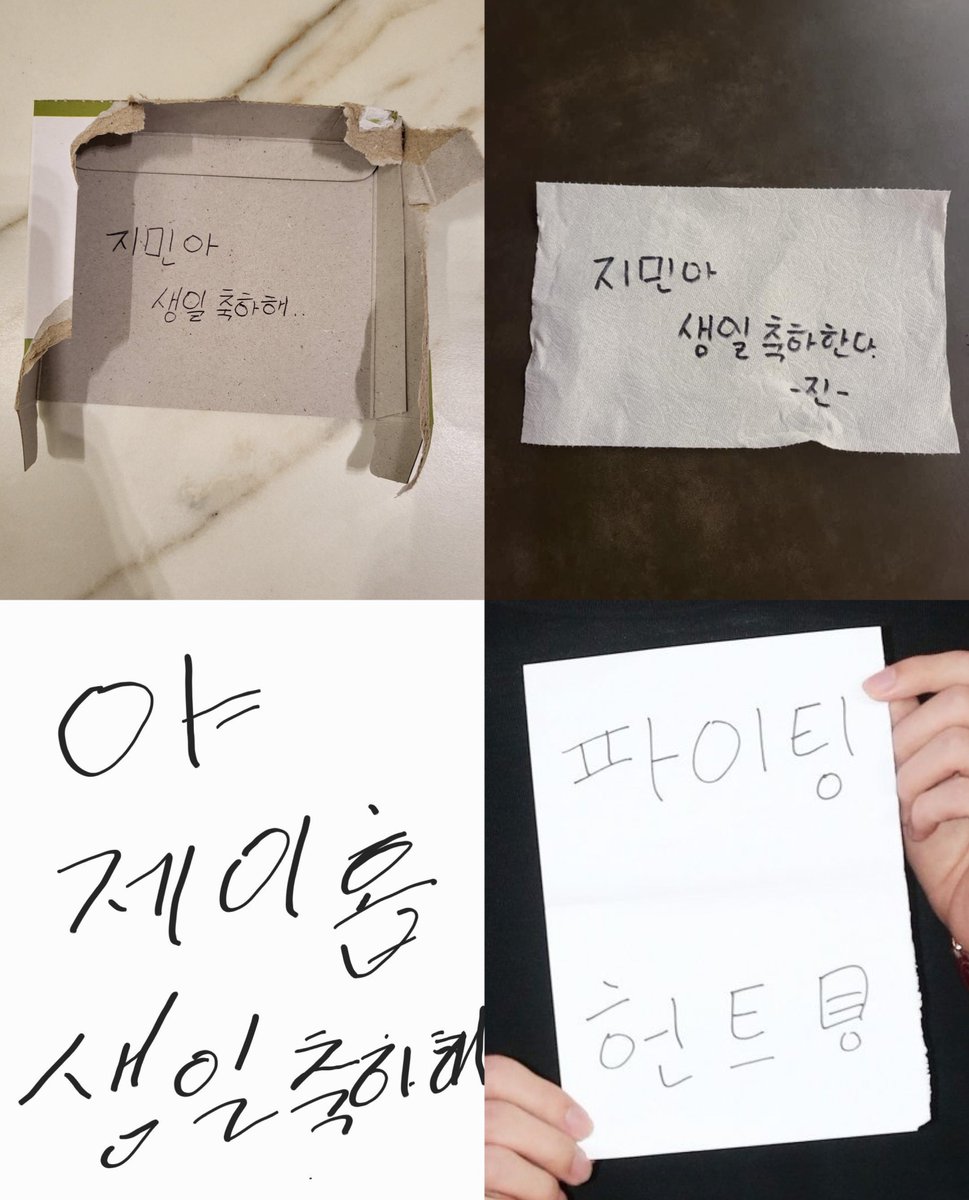 지민아
생일 축하해..
지민아
생일 축하한다.
-진-
야
제이홉
생일 축하해
파이팅
헌트